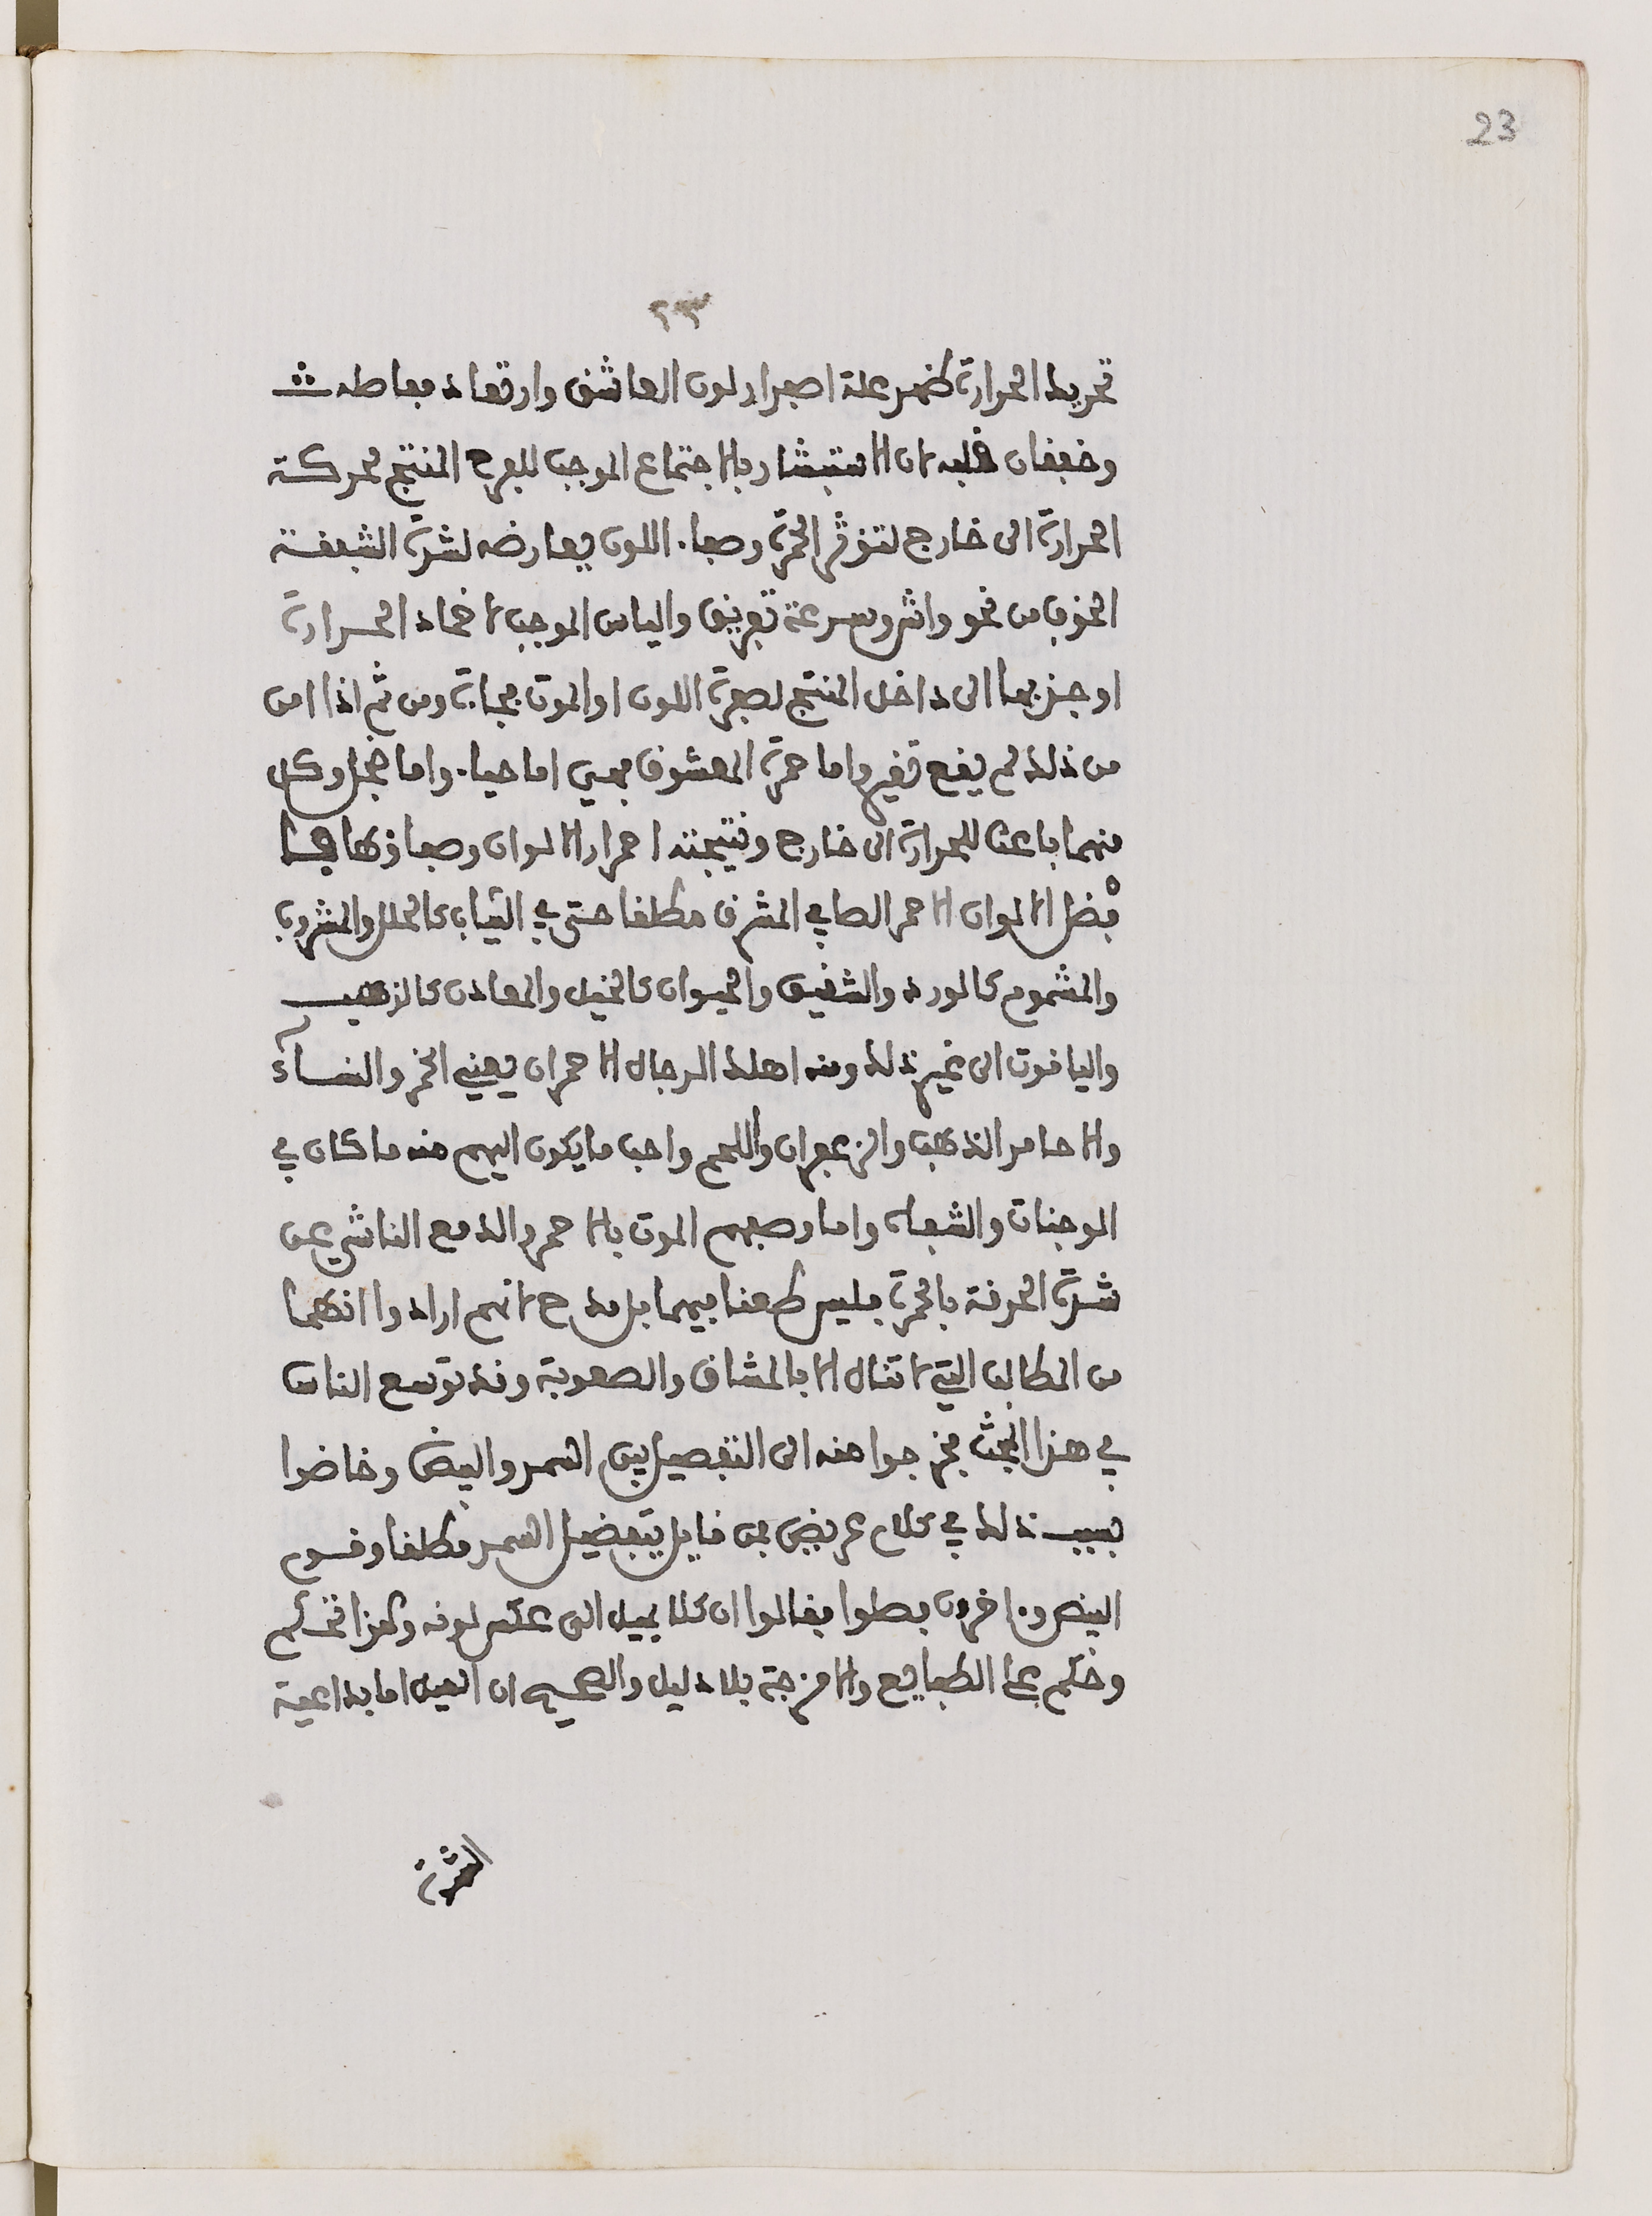 23
٢٣
تحريك الحرارة ظهر علة اصفرار لون العاشق وارتعاد مفاصله
وخفقان قلبه لان الاستبشار بالاجتماع الموجب للفرح المنتج لحركة
الحرارة الى خارج لتوفر الحمرة وصفاء اللون يعارضه لشدة الشفقة
الخوف من نحو واش وسرعة تفريق والياس الموجب لاخماد الحرارة
او جذبها الى داخل المنتج لصفرة اللون او الموت فجاة ومن ثم اذا امن
من ذلك لم يقع تغير واما حمرة المعشوق فهي اما حياء واما خجل وكل
منهما باعث للحرارة الى خارج ونتيجته احمرار الالوان وصفاؤها
فضل الالوان الاحمر الصافي المشرق مطلقا حتى في الثياب كالحلل والمشروب
والمشموم كالورد والشقيق والحيوان كالخيل والمعادن كالذهب
والياقوت الى غير ذلك ومنه اهلك الرجال الاحمران يعني الخمر والنساء
والاحامر الذهب والزعفران واللحم واحب ما يكون اليهم منه ما كان في
الوجنات والشفاه واما وصفهم الموت بالاحمر والدمع الناشي عن
شدة الحرقة بالحمرة فليس طعنا فيهما بل مدح لانهم ارادوا انهما
من المطالب التي لا تنال الا بالمشاق والصعوبة وقد توسع الناس
في هذا البحث فخرجوا منه الى التفصيل بين السمر والبيض وخاضوا
بسبب ذلك في كلام عريض فمن قايل بتفضيل السمر مطلقا وقوم
البيض وءاخرون فصلوا فقالوا ان كلا يميل الى عكس لونه وهذا تحكم
وحكم على الطبايع والامزجة بلا دليل والصحيح ان الميل اما بداعية